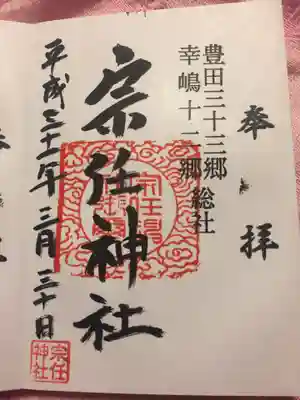 奉拝
豊田三十三郷
幸嶋十二郷 総社
宗任神社
平成三十一年三月三十日
宗任
神社